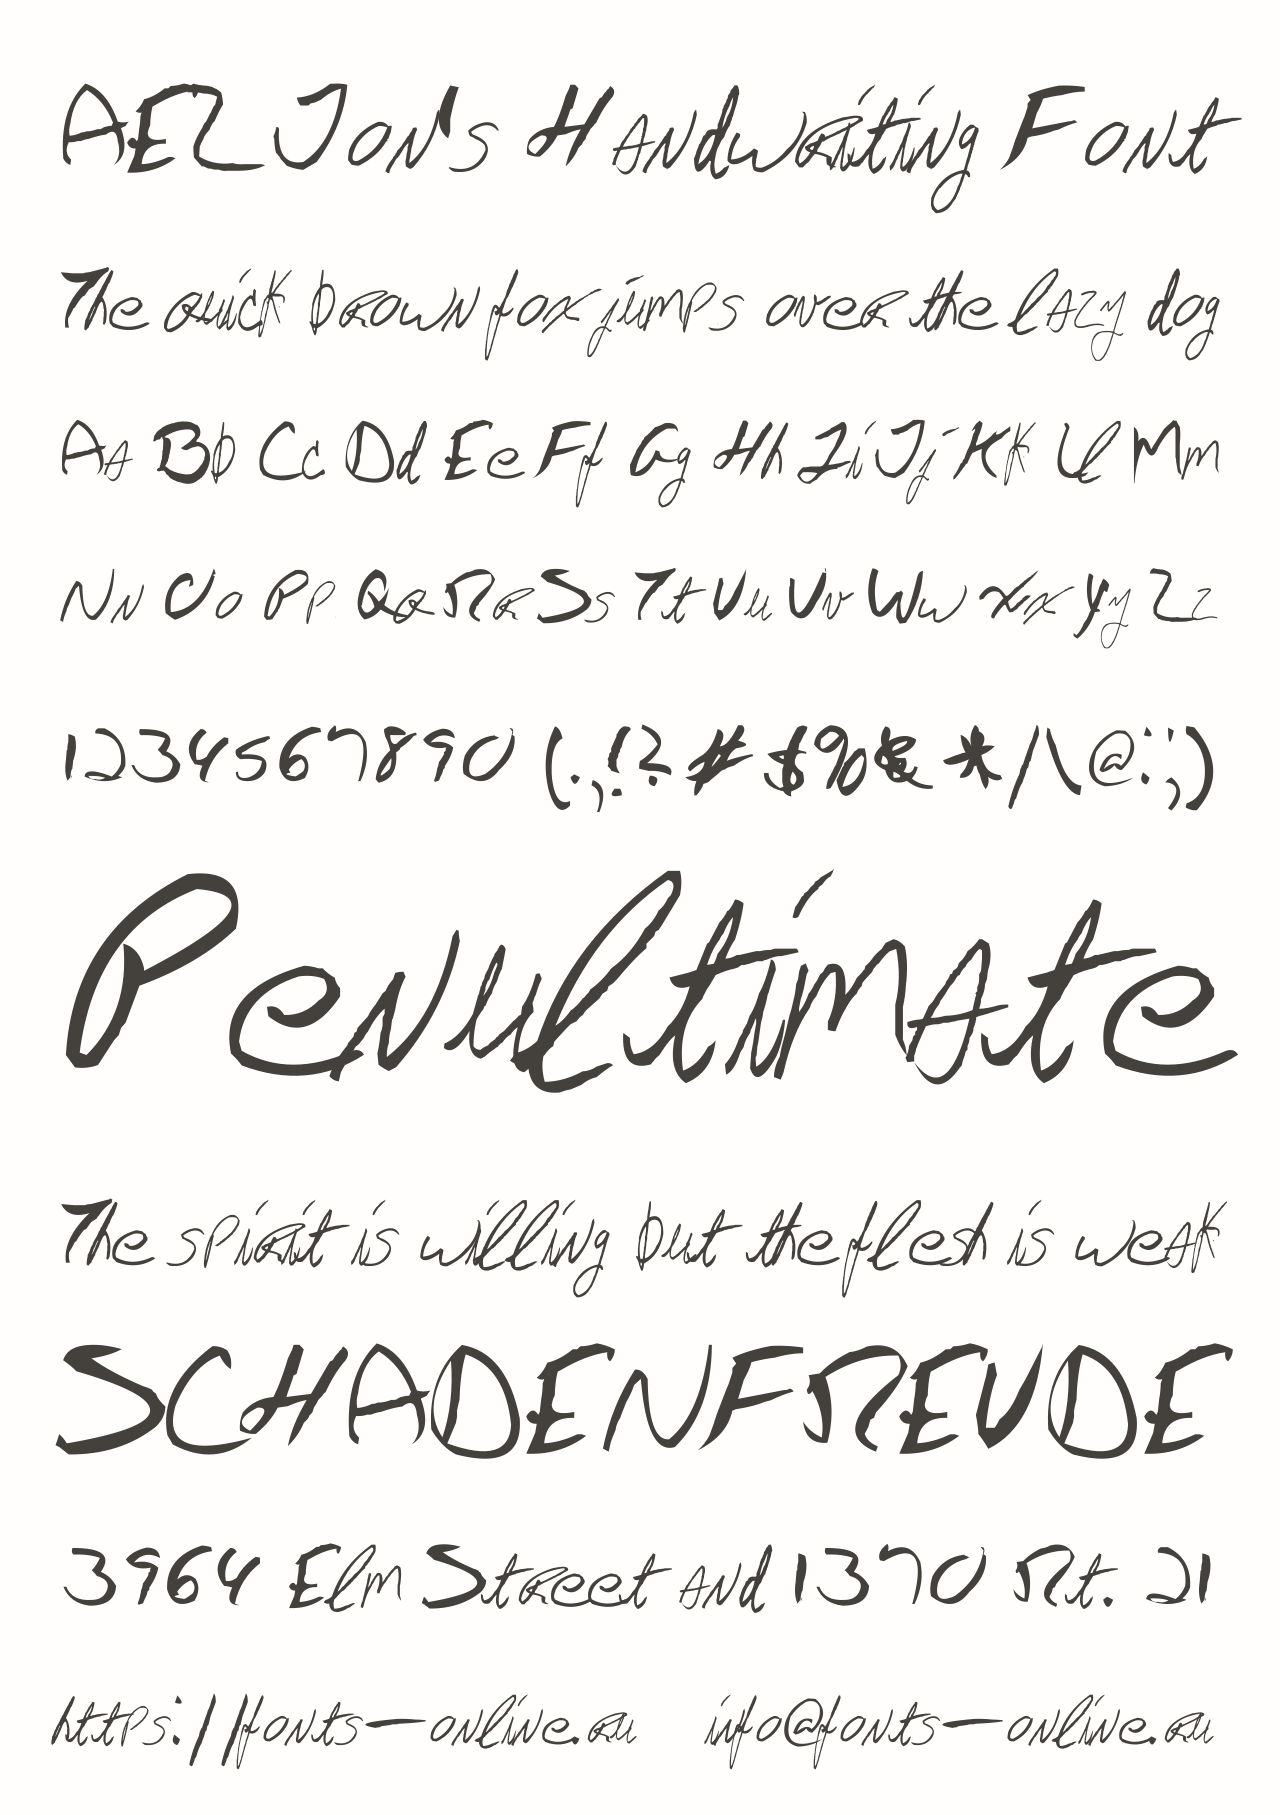 AEZ Jon's Handwriting Font
The quick brown fox jumps over the lazy dog
Aa Bb Cc Dd Ee Ff Gg Hh Ii Jj Kk Ll Mm
Nn Oo Pp Qq Rr Ss Tt Uu Vv Ww Xx Yy Zz
1234567890 (.,!? # $%& * / \ @:';)
Penultimate
The spirit is willing but the flesh is weak
SCHADENFREUDE
3964 Elm Street and 1370 Rt. 21
https://fonts-online.ru info@fonts-online.ru